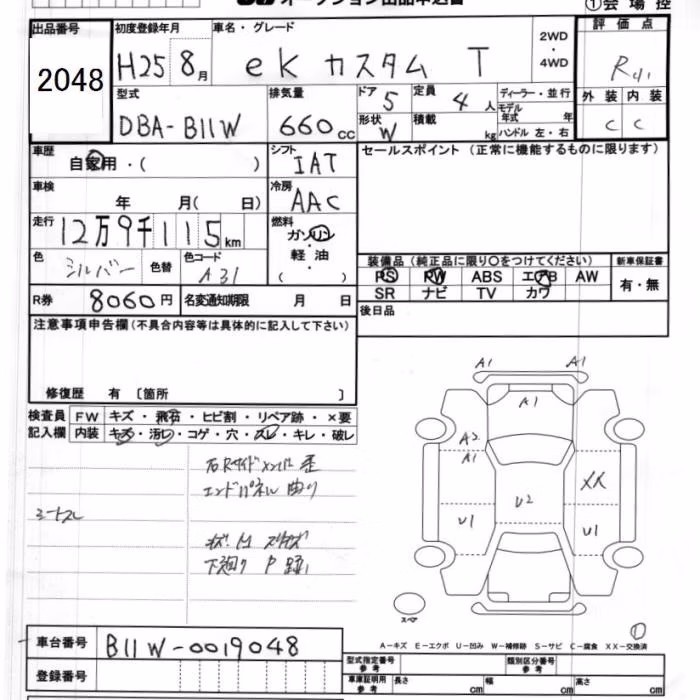 オークション出品申込書 ①会場控
出品番号 初度登録年月 車名・グレード 2WD・4WD 評価点
2048 H25 8月 eKカスタム T R
外装 内装
C C
型式 排気量 ドア 5 定員 4人 ディーラー・並行
DBA-B11W 660cc 形状 W 積載 kg モデル年式 年
ハンドル 左・右
車歴 シフト セールスポイント (正常に機能するものに限ります)
自家用・( ) IAT
車検 冷房
年 月( 日) AAC
走行 燃料
12万9千115km ガソリン・軽油・( )
色 シルバー 色替 色コード A31
装備品 (純正品に限り○をつけてください) 新車保証書
PS PW ABS エアB AW 有・無
SR ナビ TV カワ
R券 8060円 名変通知期限 月 日
後日品
注意事項申告欄(不具合内容等は具体的に記入して下さい)
修復歴 有 〔箇所 〕
検査員 FW キズ・飛石・ヒビ割・リペア跡・×要
記入欄 内装 キズ・汚レ・コゲ・穴・スレ・キレ・破レ
エンドパネル曲り
下廻り P跡
A1 A1
A1
A2
A1
XX
U2
U1 U1
スペア
A-キズ E-エクボ U-凹み W-補修跡 S-サビ C-腐食 XX-交換済
車台番号 B11W-0019048
登録番号
型式指定番号 参考 類別区分番号 参考
車庫証明用 参考 長さ cm 幅 cm 高さ cm